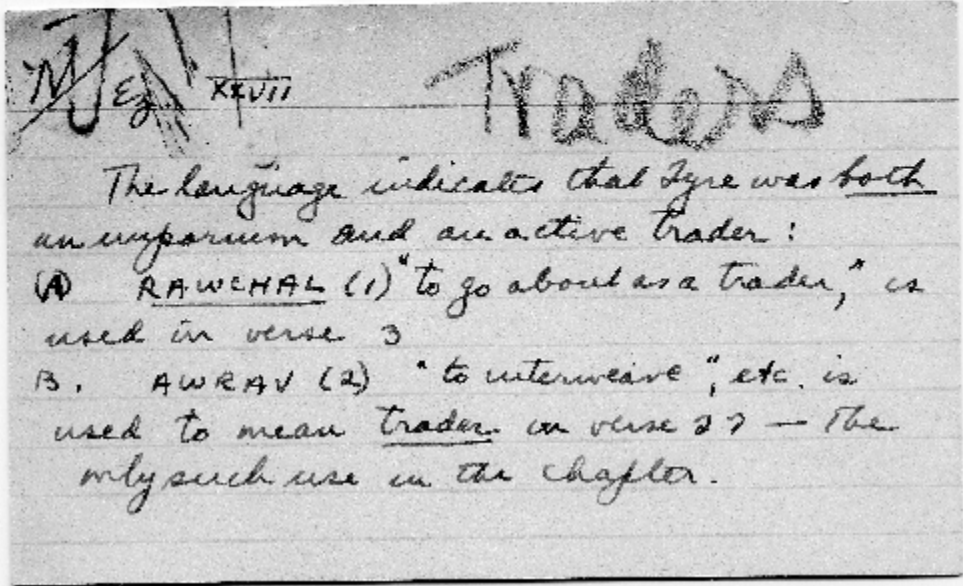 Ez. XXVII Traders
The language indicates that Tyre was both
an emporium and an active trader:
(A) RAWCHAL (1) "to go about as a trader," is
used in verse 3
B. AWRAV (2) "to interweave", etc. is
used to mean trader in verse 27 — The
only such use in the chapter.